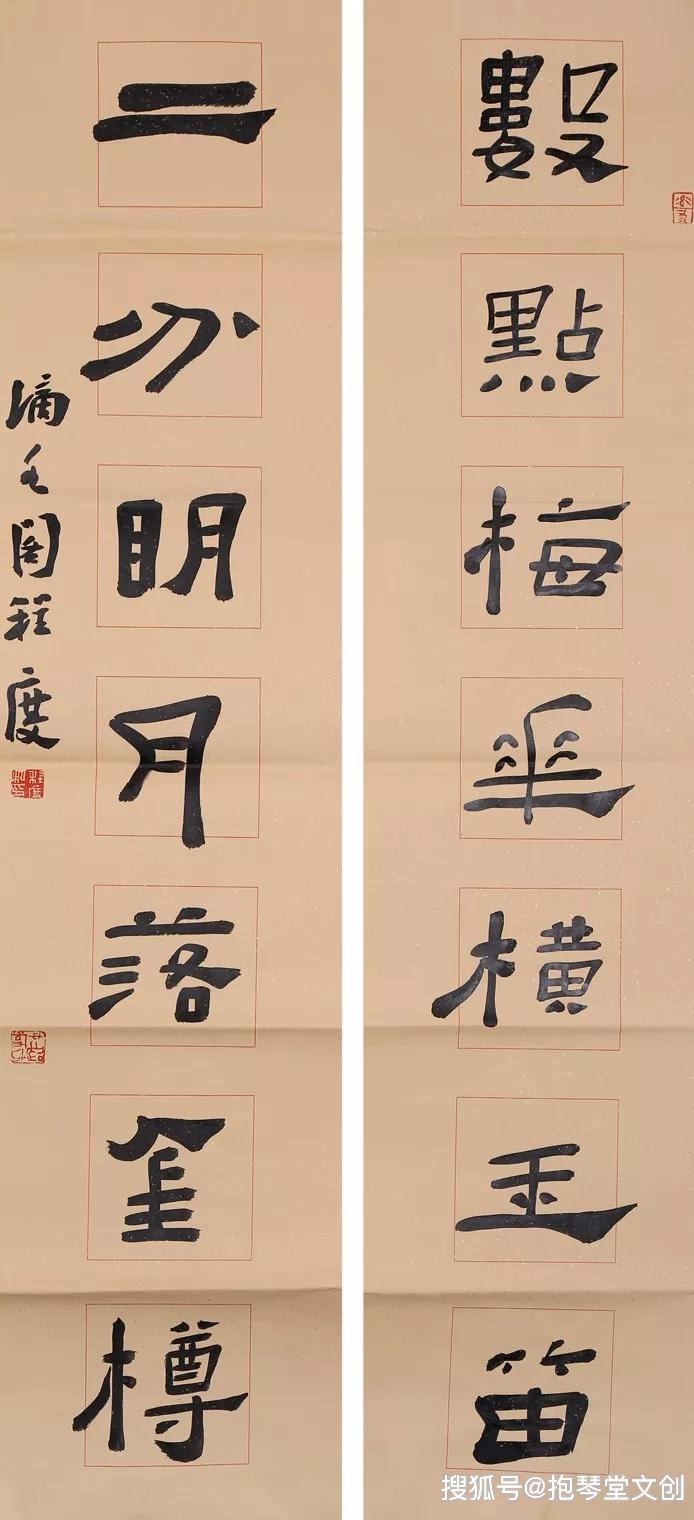 數點梅華橫玉笛
二分明月落金樽
程度
搜狐号@抱琴堂文创